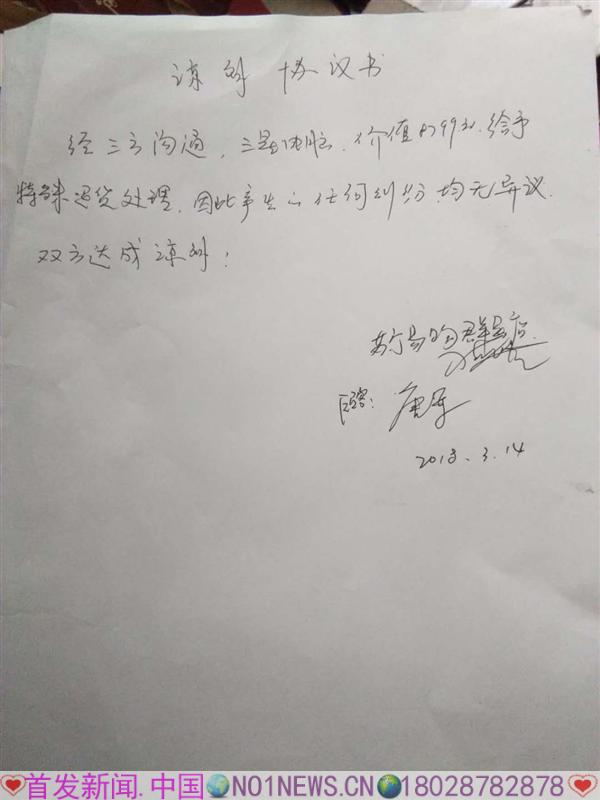 谅解协议书
经三方沟通，三星电脑，价值4799元，给予
特殊退货处理，因此产生的任何纠纷均无异议.
双方达成谅解！
苏宁易购 店
顾客：唐
2018.3.14
首发新闻.中国NO1NEWS.CN18028782878